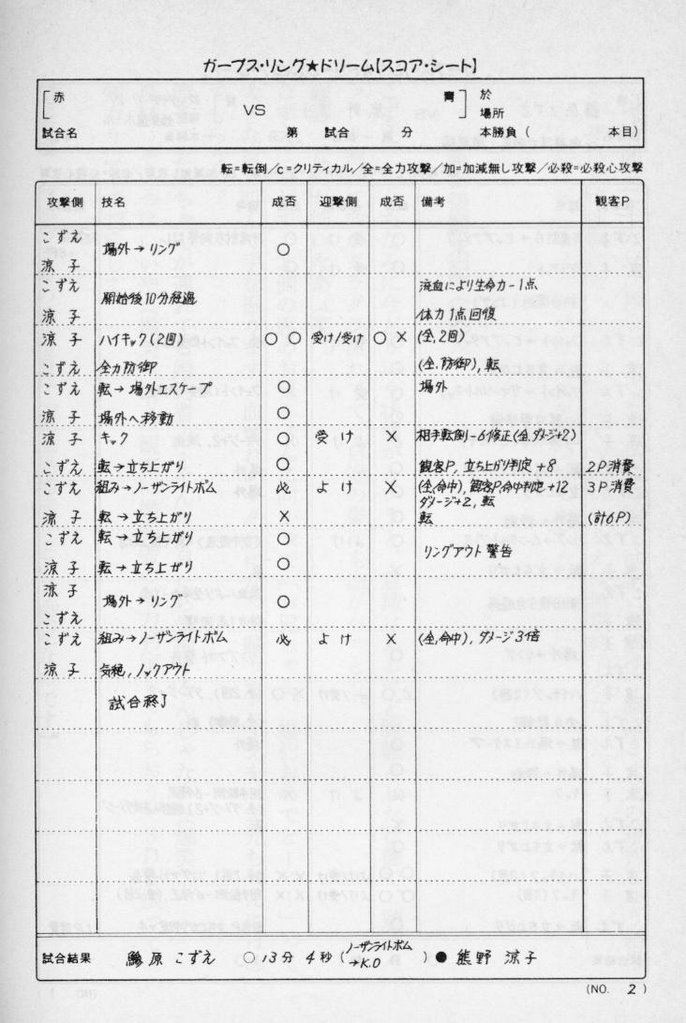 ガープス・リング★ドリーム【スコア・シート】
赤 VS 青 於
場所
試合名 第 試合 分 本勝負( 本目)
転=転倒/c=クリティカル/全=全力攻撃/加=加減無し攻撃/必殺=必殺心攻撃
攻撃側 技名 成否 迎撃側 成否 備考 観客P
こずえ
涼子 場外→リング ○
こずえ 流血により生命力-1点
開始後10分経過
涼子 体力1点回復
涼子 ハイキック(2回) ○ ○ 受け/受け ○ × (全,2回)
こずえ 全力防御 (全,防御),転
こずえ 転→場外エスケープ ○ 場外
涼子 場外へ移動 ○
涼子 キック ○ 受け × 相手転倒-6修正(全,ダメージ+2)
こずえ 転→立ち上がり ○ 観客P,立ち上がり判定+8 2P消費
こずえ 組み→ノーザンライトボム 必 よけ × (全,命中),観客P,命中判定+12 3P消費
ダメージ+2,転
涼子 転→立ち上がり × 転 (計6P)
こずえ 転→立ち上がり ○
リングアウト警告
涼子 転→立ち上がり ○
涼子
場外→リング ○
こずえ
こずえ 組み→ノーザンライトボム 必 よけ × (全,命中),ダメージ3倍
涼子 気絶,ノックアウト
試合終了
試合結果 原こずえ ○ 13分4秒(ノーザンライトボム
→K.O) ● 熊野 涼子
(NO. 2)